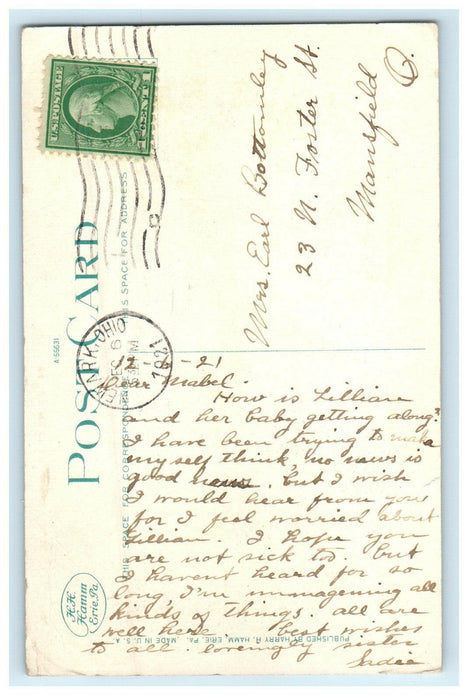 U.S. POSTAGE
1 CENT 1
POST CARD
THIS SPACE FOR ADDRESS
THIS SPACE FOR CORRESPONDENCE
A-55631
NEWARK, OHIO
DEC 6
1921
Mrs. Earl Bottomley
23 N. Foster St.
Mansfield
O.
12-5-21
Dear Mabel.
How is Lillian
and her baby getting along?
I have been trying to make
myself think, no news is
good news. but I wish
I would hear from you
for I feel worried about
Lillian. I hope you
are not sick too. but
I havent heard for so
long, I'm immagening all
kinds of things. all are
well here. best wishes
to all lovemgly sister
Sadee
H.H.
Hamm
Erie, Pa.
PUBLISHED BY HARRY H. HAMM, ERIE, PA. MADE IN U. S. A.